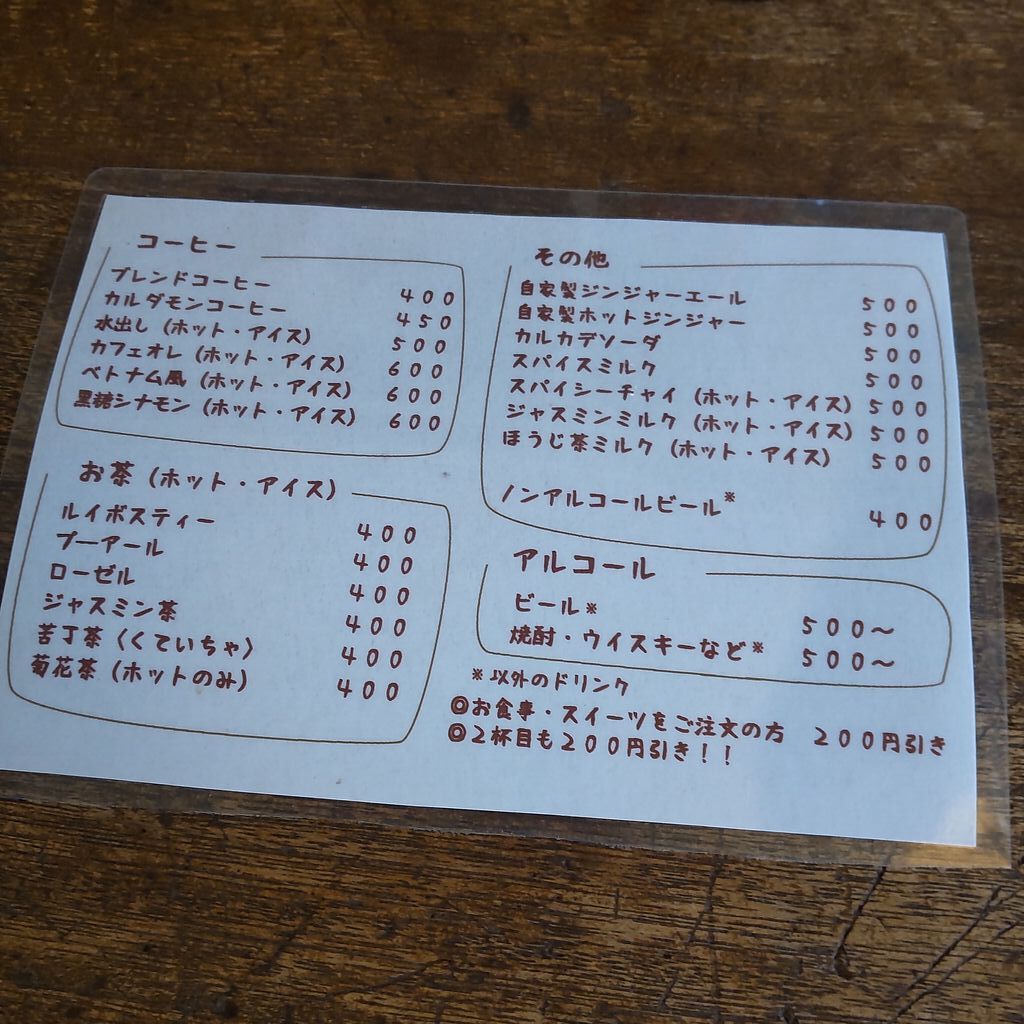 コーヒー
ブレンドコーヒー 400
カルダモンコーヒー 450
水出し（ホット・アイス） 500
カフェオレ（ホット・アイス） 600
ベトナム風（ホット・アイス） 600
黒糖シナモン（ホット・アイス） 600
お茶（ホット・アイス）
ルイボスティー 400
プーアール 400
ローゼル 400
ジャスミン茶 400
苦丁茶（くていちゃ） 400
菊花茶（ホットのみ） 400
その他
自家製ジンジャーエール 500
自家製ホットジンジャー 500
カルカデソーダ 500
スパイスミルク 500
スパイシーチャイ（ホット・アイス） 500
ジャスミンミルク（ホット・アイス） 500
ほうじ茶ミルク（ホット・アイス） 500
ノンアルコールビール※ 400
アルコール
ビール※ 500～
焼酎・ウイスキーなど※ 500～
※以外のドリンク
◎お食事・スイーツをご注文の方 200円引き
◎2杯目も200円引き！！